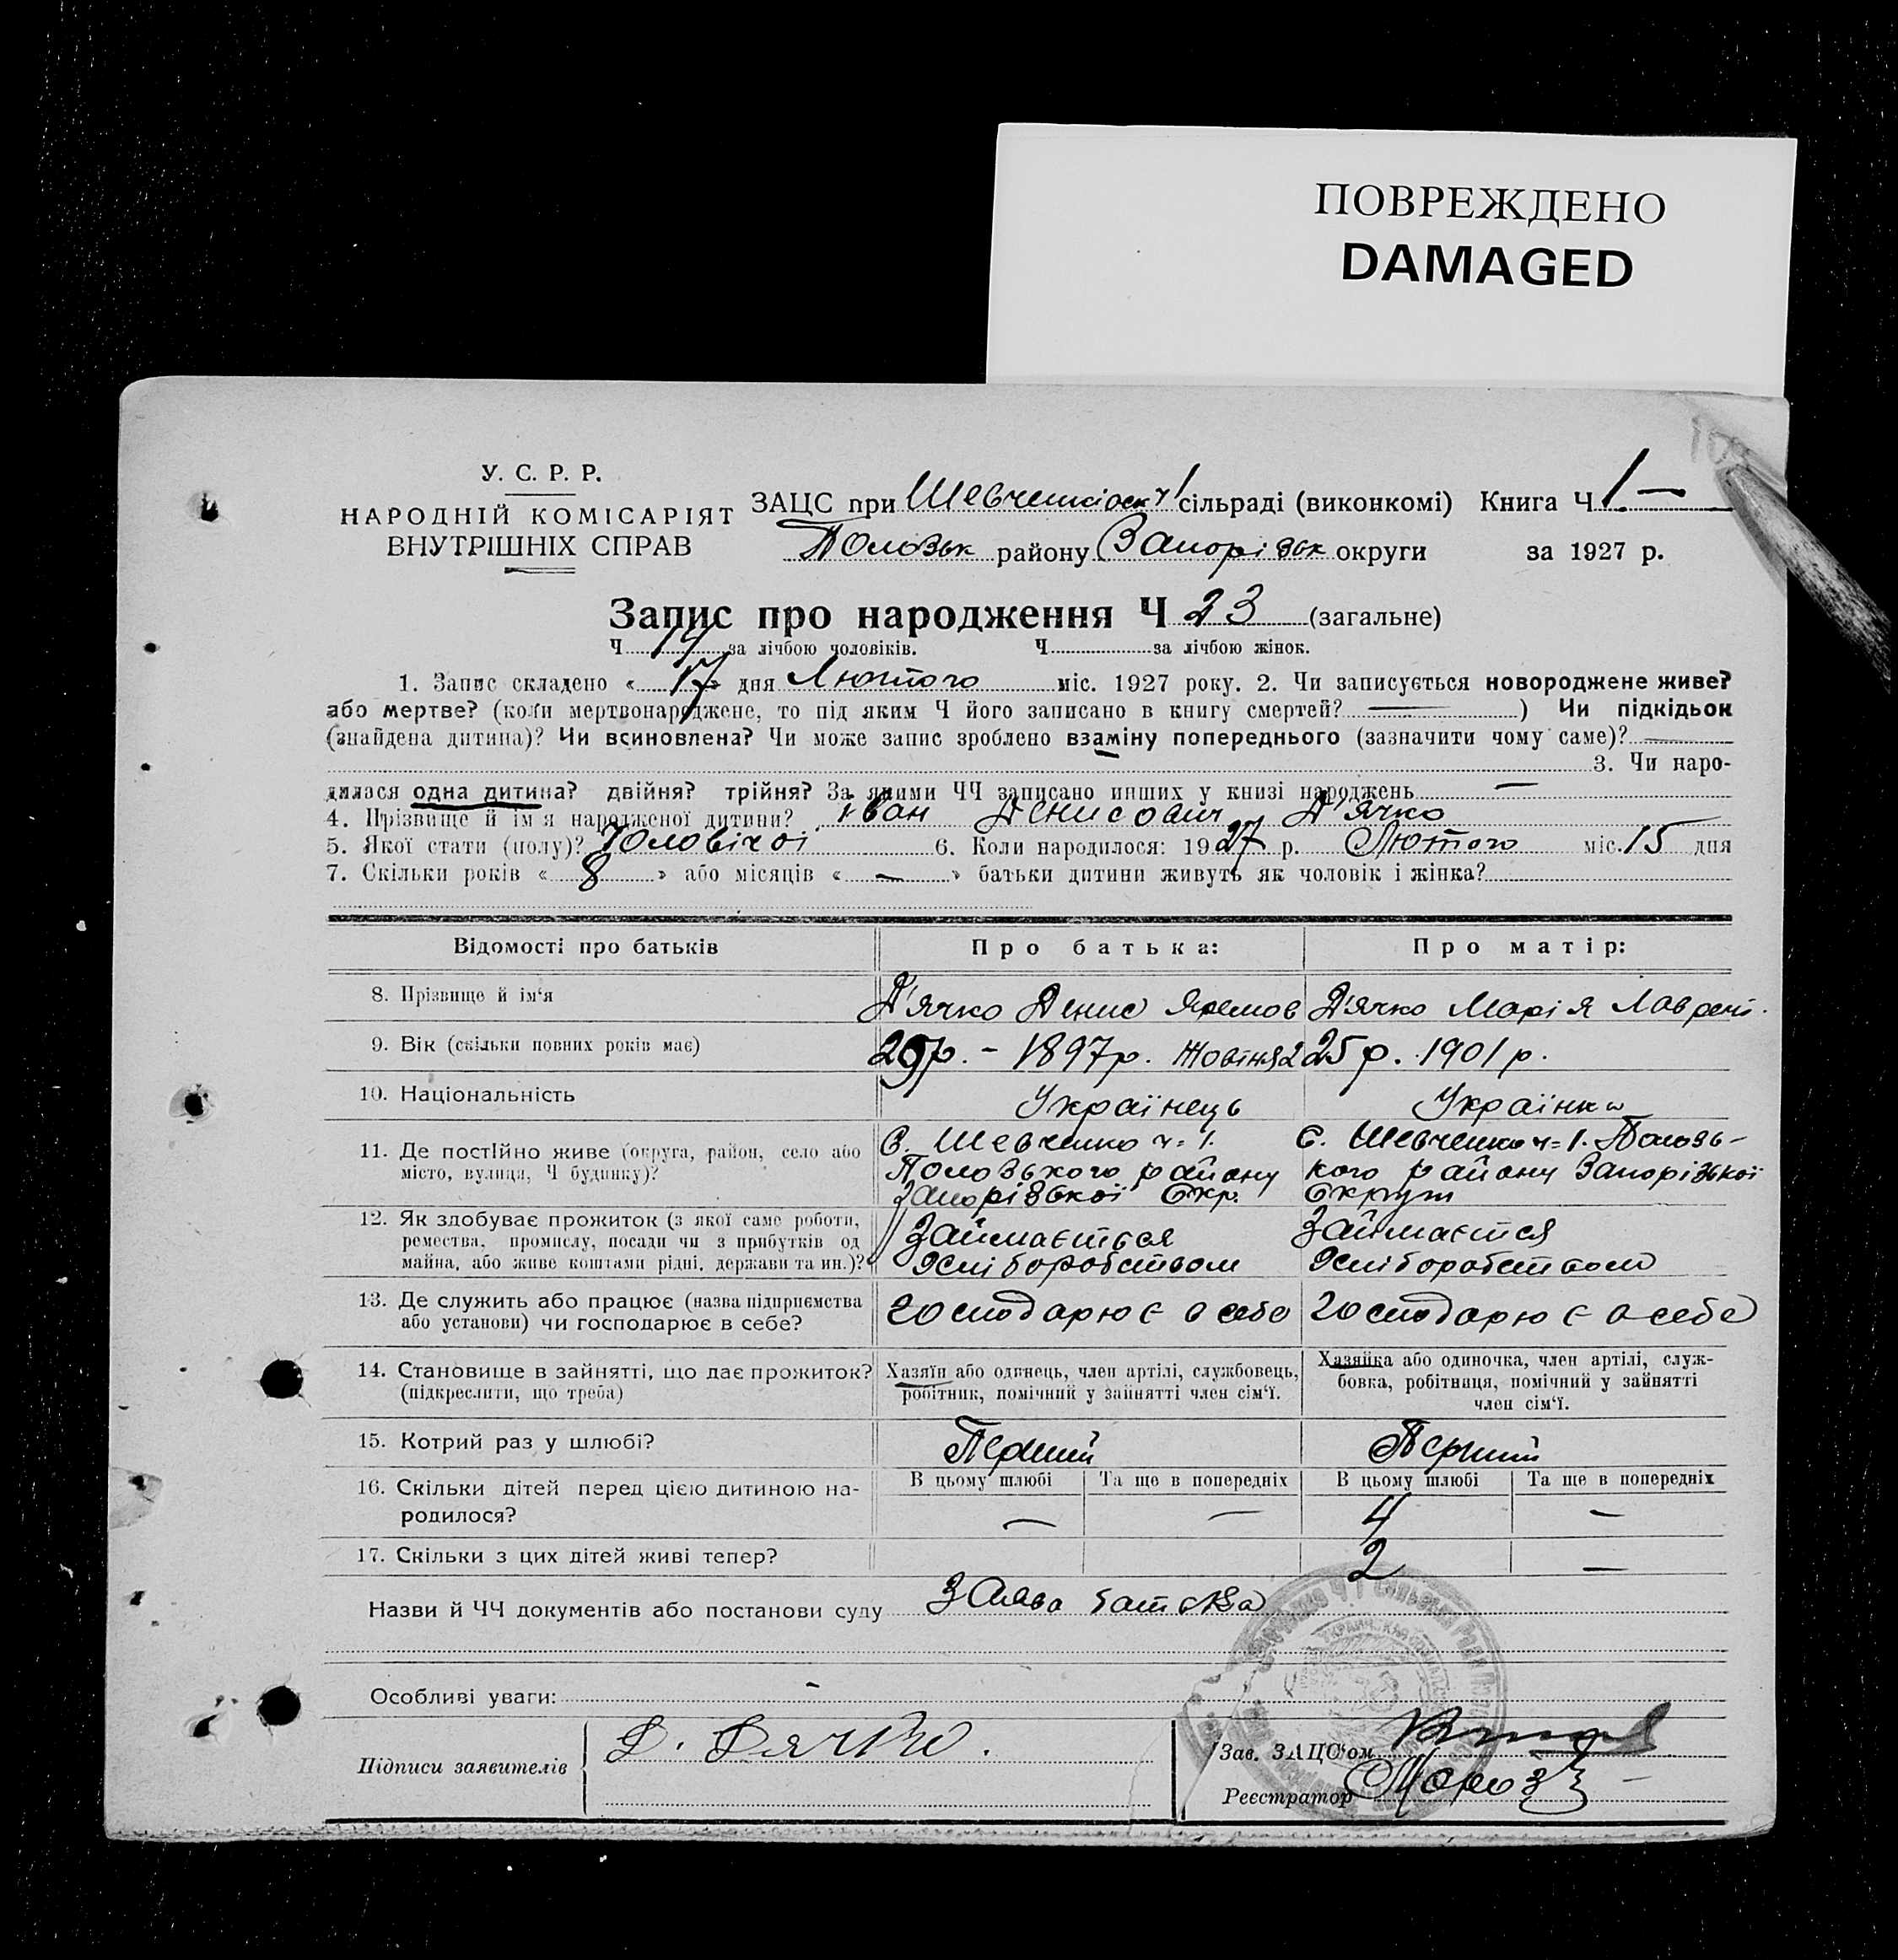 ПОВРЕЖДЕНО
DAMAGED
У. С. Р. Р.
НАРОДНІЙ КОМІСАРІЯТ
ВНУТРІШНІХ СПРАВ
ЗАЦС при Шевченківск ч 1 сільраді (виконкомі) Книга Ч 1 —
Пологівськ району Запорізьк округи за 1927 р.
Запис про народження Ч 23 (загальне)
Ч 14 за лічбою чоловіків. Ч за лічбою жінок.
1. Запис складено « 17 » дня Лютого міс. 1927 року. 2. Чи записується новороджене живе?
або мертве? (коли мертвонароджене, то під яким Ч його записано в книгу смертей? — ) Чи підкідьок
(знайдена дитина)? Чи всиновлена? Чи може запис зроблено взаміну попереднього (зазначити чому саме)? —
3. Чи наро-
дилася одна дитина? двійня? трійня? За якими ЧЧ записано инших у книзі народжень —
4. Прізвище й ім'я народженої дитини? Іван Денисович Д'ячко
5. Якої стати (полу)? Чоловічої 6. Коли народилося: 1927 р. Лютого міс. 15 дня
7. Скільки років « 8 » або місяців « — » батьки дитини живуть як чоловік і жінка?
Відомості про батьків Про батька: Про матір:
8. Прізвище й ім'я Д'ячко Денис Яремов Д'ячко Марія Лаврент.
9. Вік (скільки повних років має) 29 р. - 1897 р. Жовтня 2 25 р. 1901 р.
10. Національність Українець Українка
11. Де постійно живе (округа, район, село або місто, вулиця, Ч будинку)? С. Шевченко ч = 1. С. Шевченко ч = 1.
района Запорізької Окр. району Запорізької Округи
12. Як здобуває прожиток (з якої саме роботи,
ремества, промислу, посади чи з прибутків од
майна, або живе коштами рідні, держави та ин.)?
Займається хліборобством Займається хліборобством
13. Де служить або працює (назва підприємства
або установи) чи господарює в себе? господарює в себе господарює в себе
14. Становище в зайнятті, що дає прожиток?
(підкреслити, що треба)
Хазяїн або одинець, член артілі, службовець,
робітник, помічний у зайнятті член сім'ї.
Хазяйка або одиночка, член артілі, служ-
бовка, робітниця, помічний у зайнятті
член сім'ї.
15. Котрий раз у шлюбі? Перший Перший
В цьому шлюбі Та ще в попередніх В цьому шлюбі Та ще в попередніх
16. Скільки дітей перед цією дитиною на-
родилося? — — 4 —
17. Скільки з цих дітей живі тепер? 2 —
Назви й ЧЧ документів або постанови суду Заява батька
Особливі уваги: -
Підписи заявителів Д. Дячко.
Зав. ЗАЦС'ом
Реєстратор Мороз